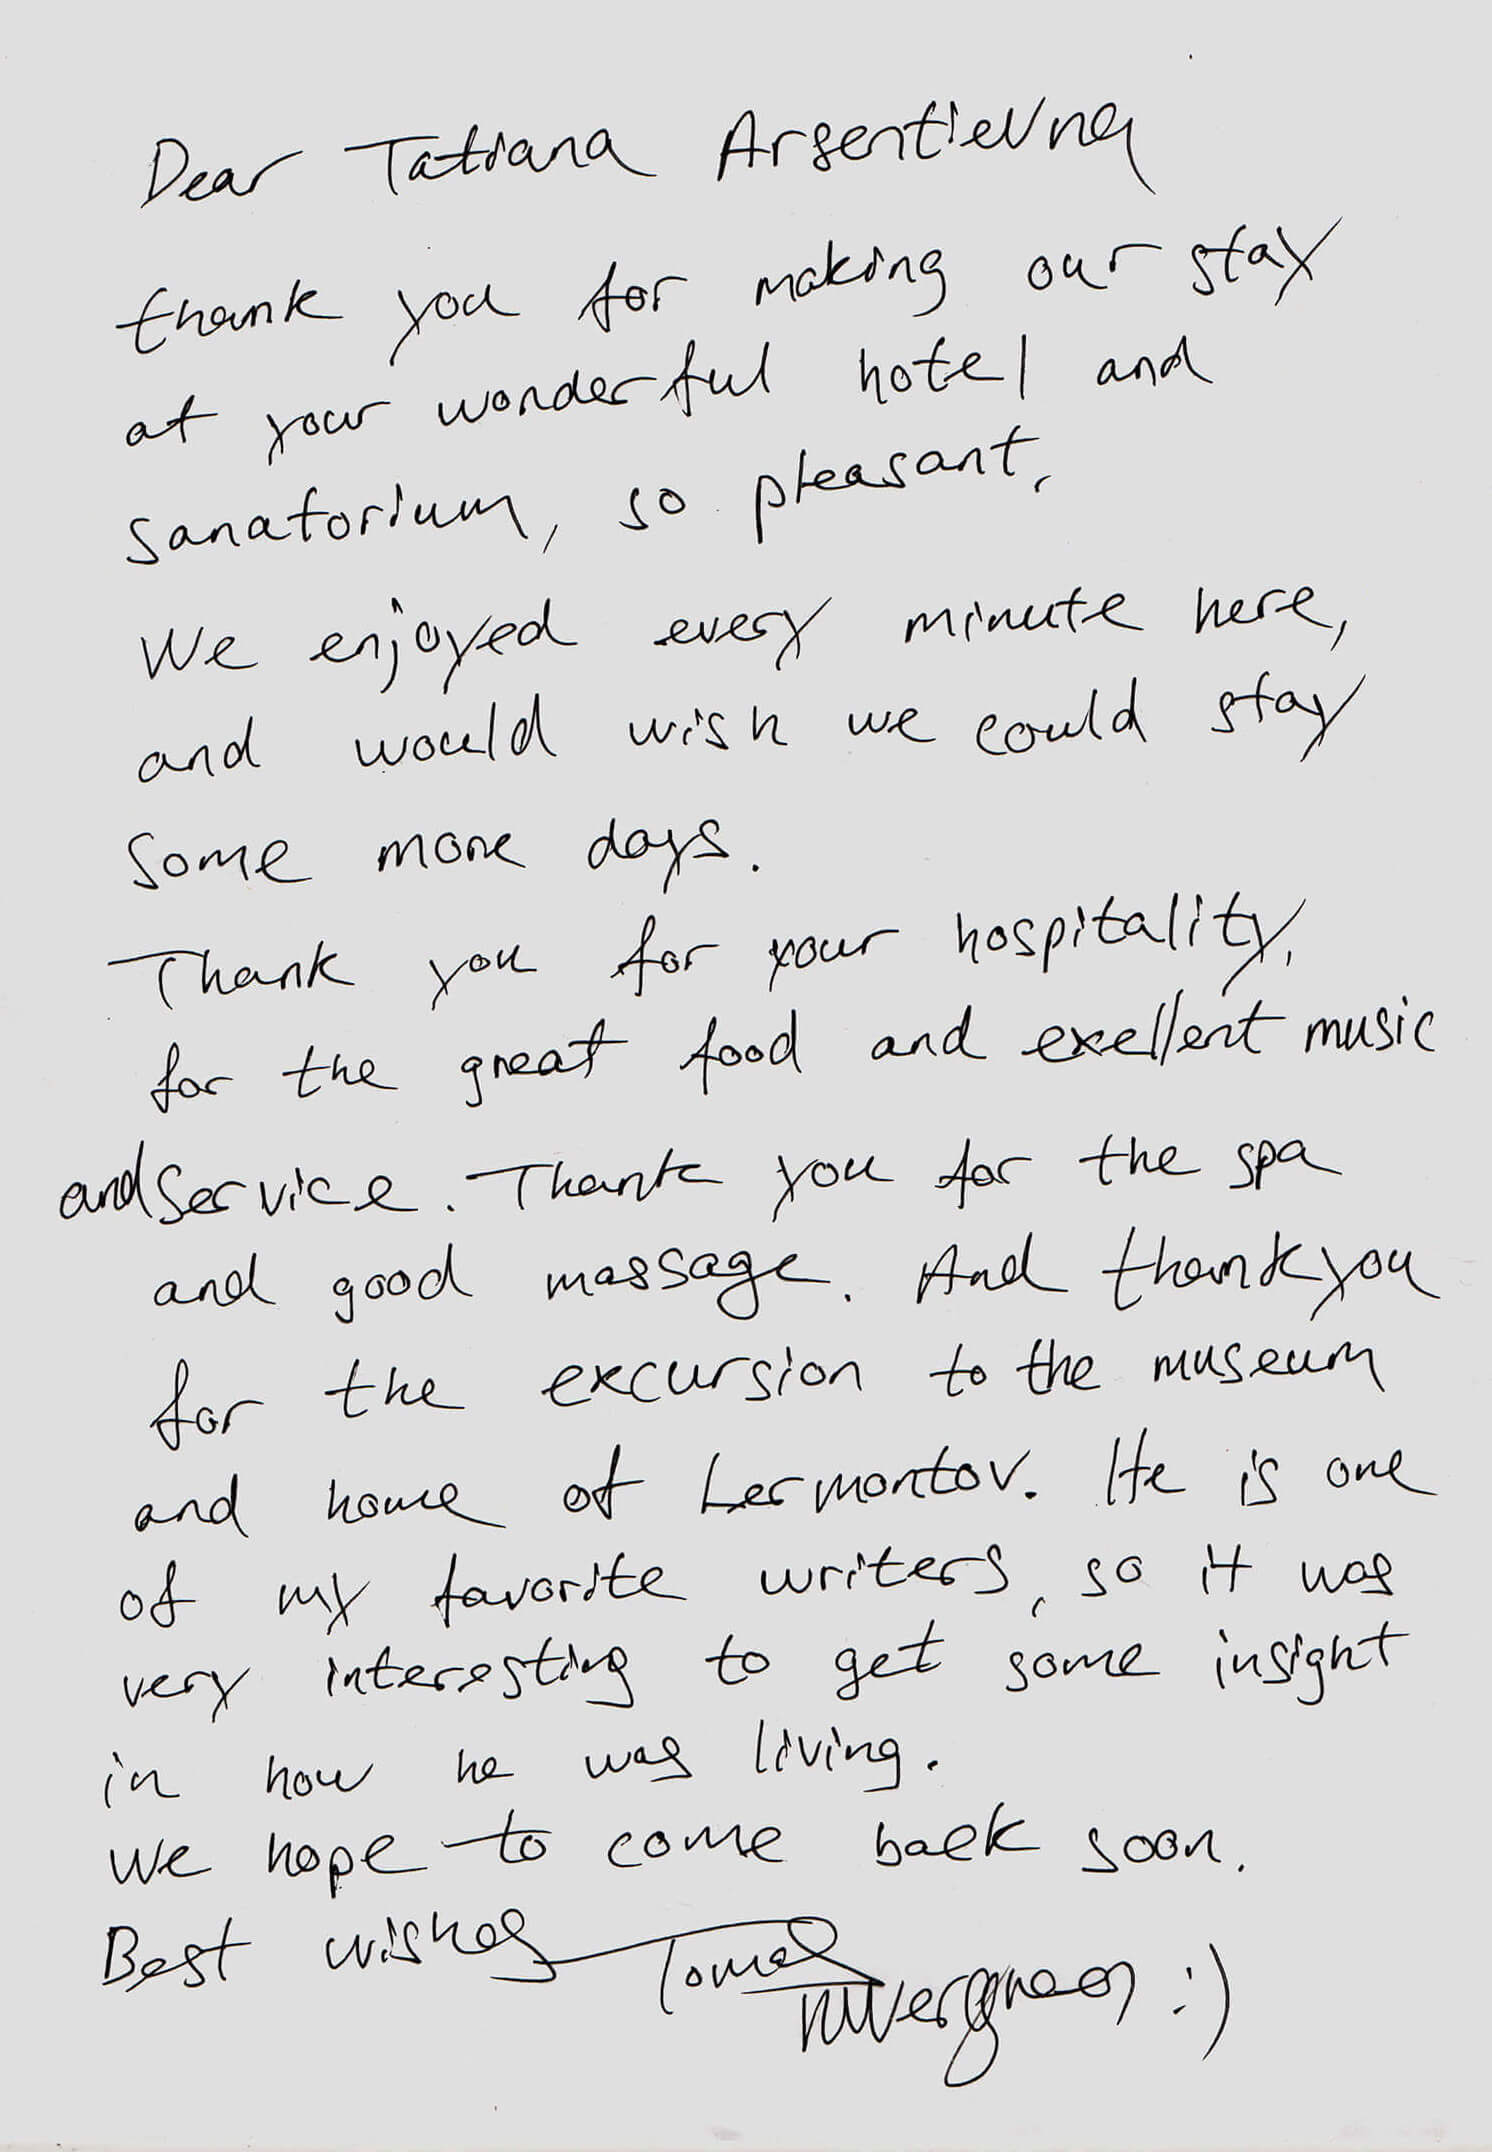 Dear Tatiana Arsentievna
thank you for making our stay
at your wonderful hotel and
sanatorium, so pleasant,
We enjoyed every minute here,
and would wish we could stay
some more days.
Thank you for your hospitality,
for the great food and exellent music
and service. Thank you for the spa
and good massage. And thank you
for the excursion to the museum
and home of Lermontov. He is one
of my favorite writers, so it was
very interesting to get some insight
in how he was living.
We hope to come back soon.
Best wishes Tomas
:)